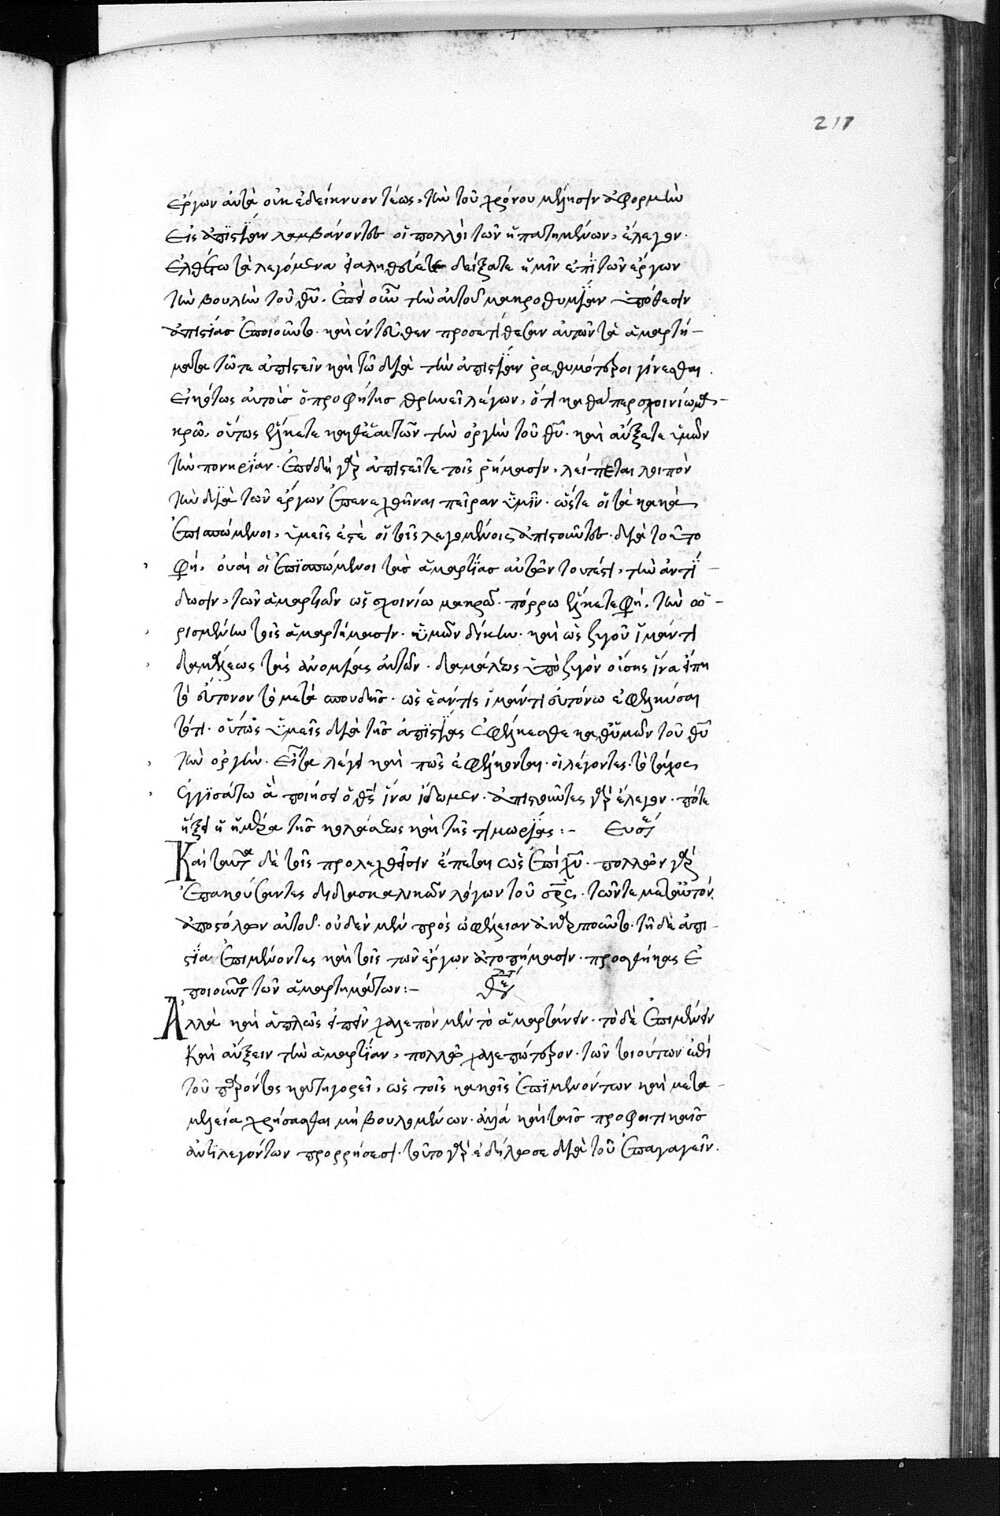 217
ἔργων αὐτὰ οὐκ ἐδείκνυον τέως, τὴν τοῦ χρόνου μέλλησιν ἀφορμὴν
εἰς ἀπιστίαν λαμβάνοντες οἱ πολλοὶ τῶν ἠπατημένων, ἔλεγον.
ἐλθέτω τὰ λεγόμενα δείξατε ἡμῖν ἐπὶ τῶν ἔργων
τὴν βουλὴν τοῦ θυ. ἐπεὶ οὖν τὴν αὐτοῦ μακροθυμίαν ὑπόθεσιν
ἀπιστίας ἐποιοῦντο. καὶ ἐντεῦθεν προσετίθεσαν αὐτῶν τὰ ἁμαρτή-
ματα τῶτε ἀπιστεῖν καὶ τῶ διὰ τὴν ἀπιστίαν ῥαθυμότεροι γίνεσθαι.
εἰκότως αὐτοὺς ὁ προφήτης θρηνεῖ λέγων, ὅτι καθάπερ σχοινίω μα-
κρῶ, οὕτως εἵλκετε καθ' ἑαυτῶν τὴν ὀργὴν τοῦ θυ. καὶ αὔξετε ὑμῶν
τὴν πονηρίαν. ἐπειδὴ γὰρ ἀπιστεῖτε τοῖς ῥήμασιν, λείπεται λοιπὸν
τὴν διὰ τῶν ἔργων ἐπενεχθῆναι πεῖραν ὑμῖν. ὥστε οἱ τὰ κακὰ
ἐπισπώμενοι, ὑμεῖς ἐστὲ οἱ τοῖς λεγομένοις ἀπιστοῦντες. διὰ τοῦτο
φη. οὐαὶ οἱ ἐπισπώμενοι τὰς ἁμαρτίας αὐτῶν τουτέστι, τὴν ἀντί-
δωσιν, τῶν ἁμαρτιῶν ὡς σχοινίω μακρῶ. πόρρω εἵλκετε φη. τὴν ὡ-
ρισμένην τοῖς ἁμαρτήμασιν ὑμῶν δίκην. καὶ ὡς ζυγοῦ ἱμάντι
δαμάλεως τὰς ἀνομίας αὐτῶν. δαμάλεως ὑπὸ ζυγὸν οὔσης ἵνα εἴπη
τὸ σύτονον τὸ μετὰ σπουδῆς. ὡς ἐάν τις ἱμάντι συτόνω ἐφελκύσαι
τὸτι. οὕτως ὑμεῖς διὰ τῆς ἀπιστίας ἐφέλκεσθε καθ' ὑμῶν τοῦ θυ
τὴν ὀργήν. εἶτα λέγει καὶ πῶς ἐφέλκονται. οἱ λέγοντες. τὸ τάχος
ἐγγισάτω ἃ ποιήσει ὁ θς ἵνα ἴδωμεν. ἀπιστοῦντες γὰρ ἔλεγον. πότε
ἥξει ἡ ἡμέρα τῆς κολάσεως καὶ τῆς τιμωρίας:- Ευσε
Καὶ ταῦτα δὲ τοῖς προλεχθεῖσιν ἕπεται ὡς ἐπὶ χυ. πολλῶν γὰρ
ἐπακούσαντες διδασκαλικῶν λόγων τοῦ σρς. τῶντε μετ' αὐτὸν
ἀποστόλων αὐτοῦ. οὐδὲν μὲν πρὸς ὠφέλειαν ἀνεποιοῦντο. τῆ δὲ ἀπι-
στία ἐπιμένοντες καὶ τοῖς τῶν ἔργων ἀτοπήμασιν. προσθήκας ἐ
ποιοῦντο τῶν ἁμαρτημάτων:-
Ἀλλὰ καὶ ἁπλῶς εἰπεῖν χαλεπὸν μὲν τὸ ἁμαρτάνειν. τὸ δὲ ἐπιμένειν
καὶ αὔξειν τὴν ἁμαρτίαν, πολλῶ χαλεπώτερον. τῶν τοιούτων ἐπὶ
τοῦ παρόντος κατηγορεῖ, ὡς τοῖς κακοῖς ἐπιμενόντων καὶ μετα-
μελεία χρήσασθαι μὴ βουλομένων. ἀλλὰ καὶ ταῖς προφητικαῖς
ἀντιλεγόντων προρρήσεσι. τοῦτο γὰρ ἐδήλωσε διὰ τοῦ ἐπαγαγεῖν.